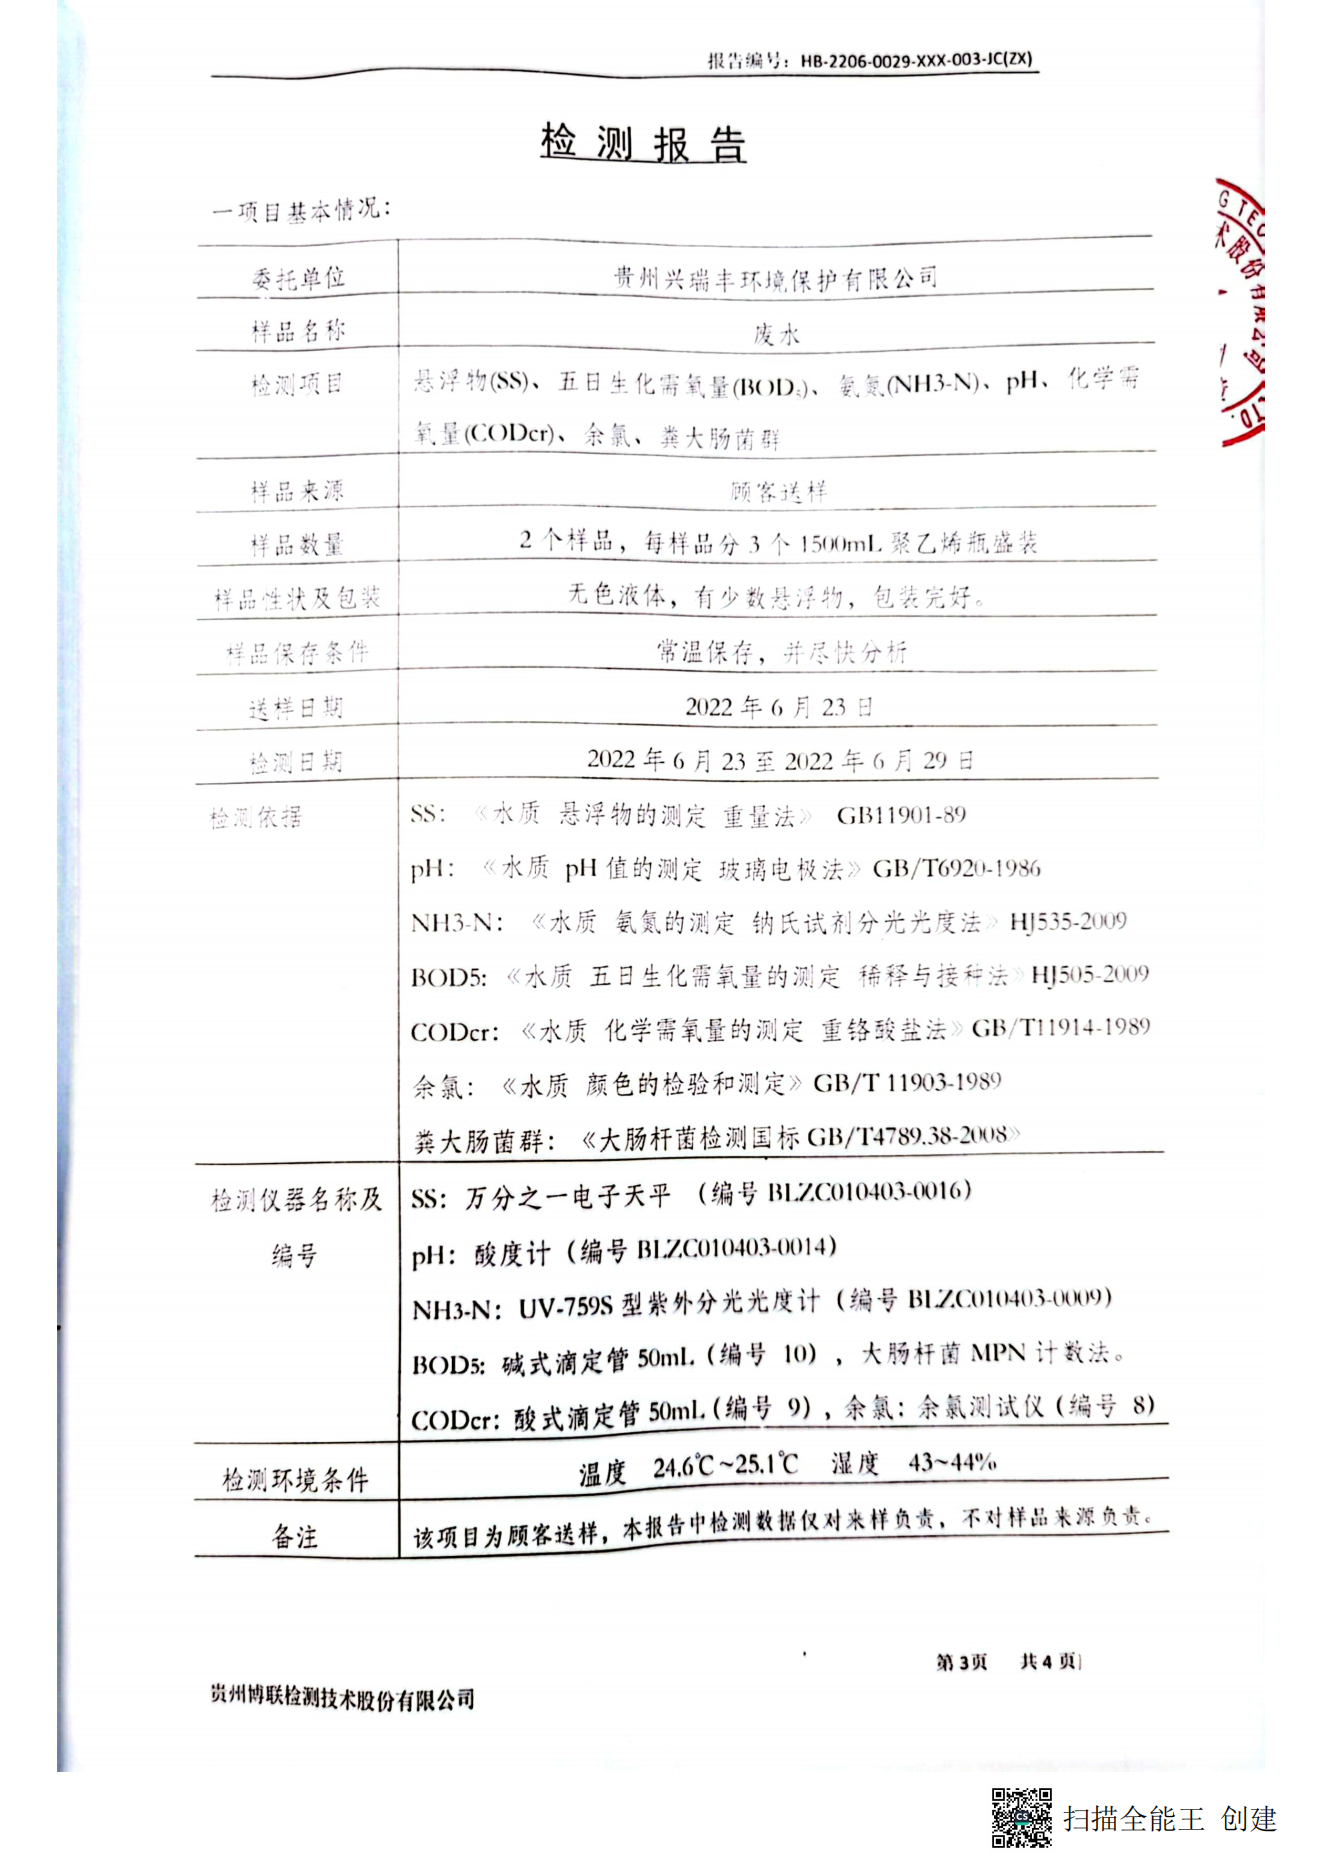 报告编号：HB-2206-0029-XXX-003-JC(ZX)
检测报告
一项目基本情况：
委托单位 贵州兴瑞丰环境保护有限公司
样品名称 废水
检测项目 悬浮物(SS)、五日生化需氧量(BOD₅)、氨氮(NH3-N)、pH、化学需
氧量(CODcr)、余氯、粪大肠菌群
样品来源 顾客送样
样品数量 2个样品，每样品分3个1500mL聚乙烯瓶盛装
样品性状及包装 无色液体，有少数悬浮物，包装完好。
样品保存条件 常温保存，并尽快分析
送样日期 2022年6月23日
检测日期 2022年6月23至2022年6月29日
检测依据 SS：《水质 悬浮物的测定 重量法》 GB11901-89
pH：《水质 pH值的测定 玻璃电极法》GB/T6920-1986
NH3-N：《水质 氨氮的测定 钠氏试剂分光光度法》HJ535-2009
BOD5:《水质 五日生化需氧量的测定 稀释与接种法》HJ505-2009
CODcr：《水质 化学需氧量的测定 重铬酸盐法》GB/T11914-1989
余氯：《水质 颜色的检验和测定》GB/T 11903-1989
粪大肠菌群：《大肠杆菌检测国标GB/T4789.38-2008》
检测仪器名称及 SS：万分之一电子天平 （编号BLZC010403-0016）
编号 pH：酸度计（编号BLZC010403-0014）
NH3-N：UV-759S型紫外分光光度计（编号BLZC010403-0009）
BOD5: 碱式滴定管50mL（编号 10），大肠杆菌MPN计数法。
CODcr：酸式滴定管50mL（编号 9），余氯：余氯测试仪（编号 8）
检测环境条件 温度 24.6℃~25.1℃ 湿度 43~44%
备注 该项目为顾客送样，本报告中检测数据仅对来样负责，不对样品来源负责。
第3页 共4页
贵州博联检测技术股份有限公司
G TEC
术股份有限公司
LTD.
扫描全能王 创建